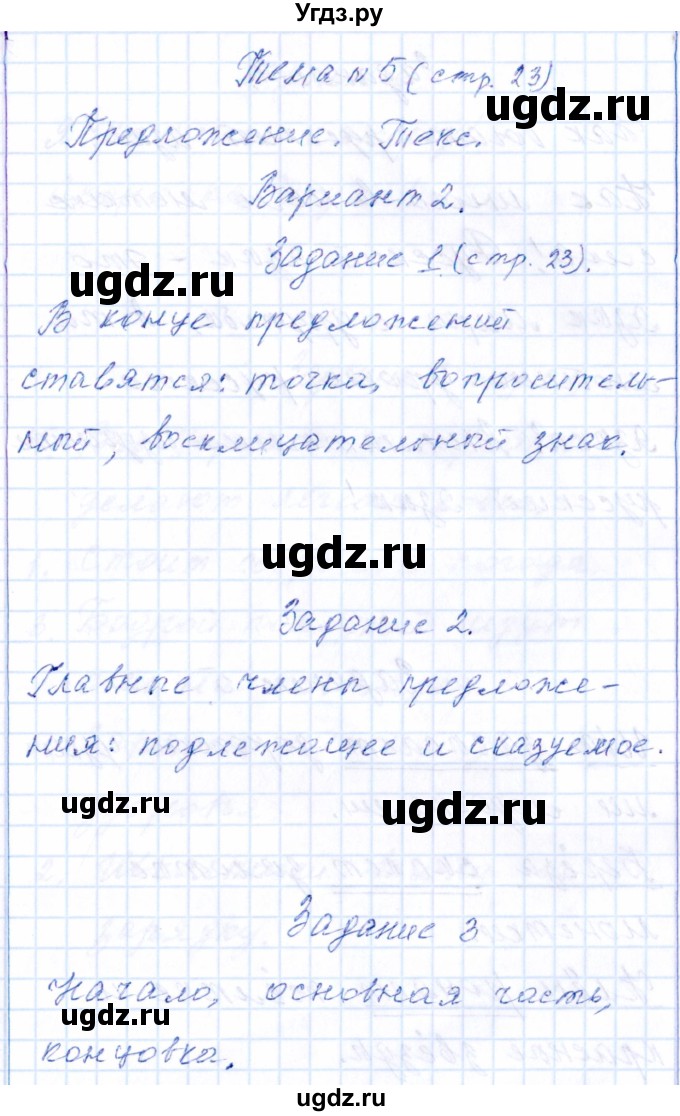 Угдз.ру
Тема №5 (стр. 23)
ugdz.ru
Предложение. Текс.
Вариант 2.
Задание 1 (стр. 23).
ugdz.ru
В конце предложений
ставятся: точка, вопроситель-
ный, восклицательный знак.
ugdz.ru
Задание 2.
Главные члены предложе-
ния: подлежащее и сказуемое.
ugdz.ru
ugdz.ru
Задание 3
Начало, основная часть,
ugdz.ru
концовка.
ugdz.ru